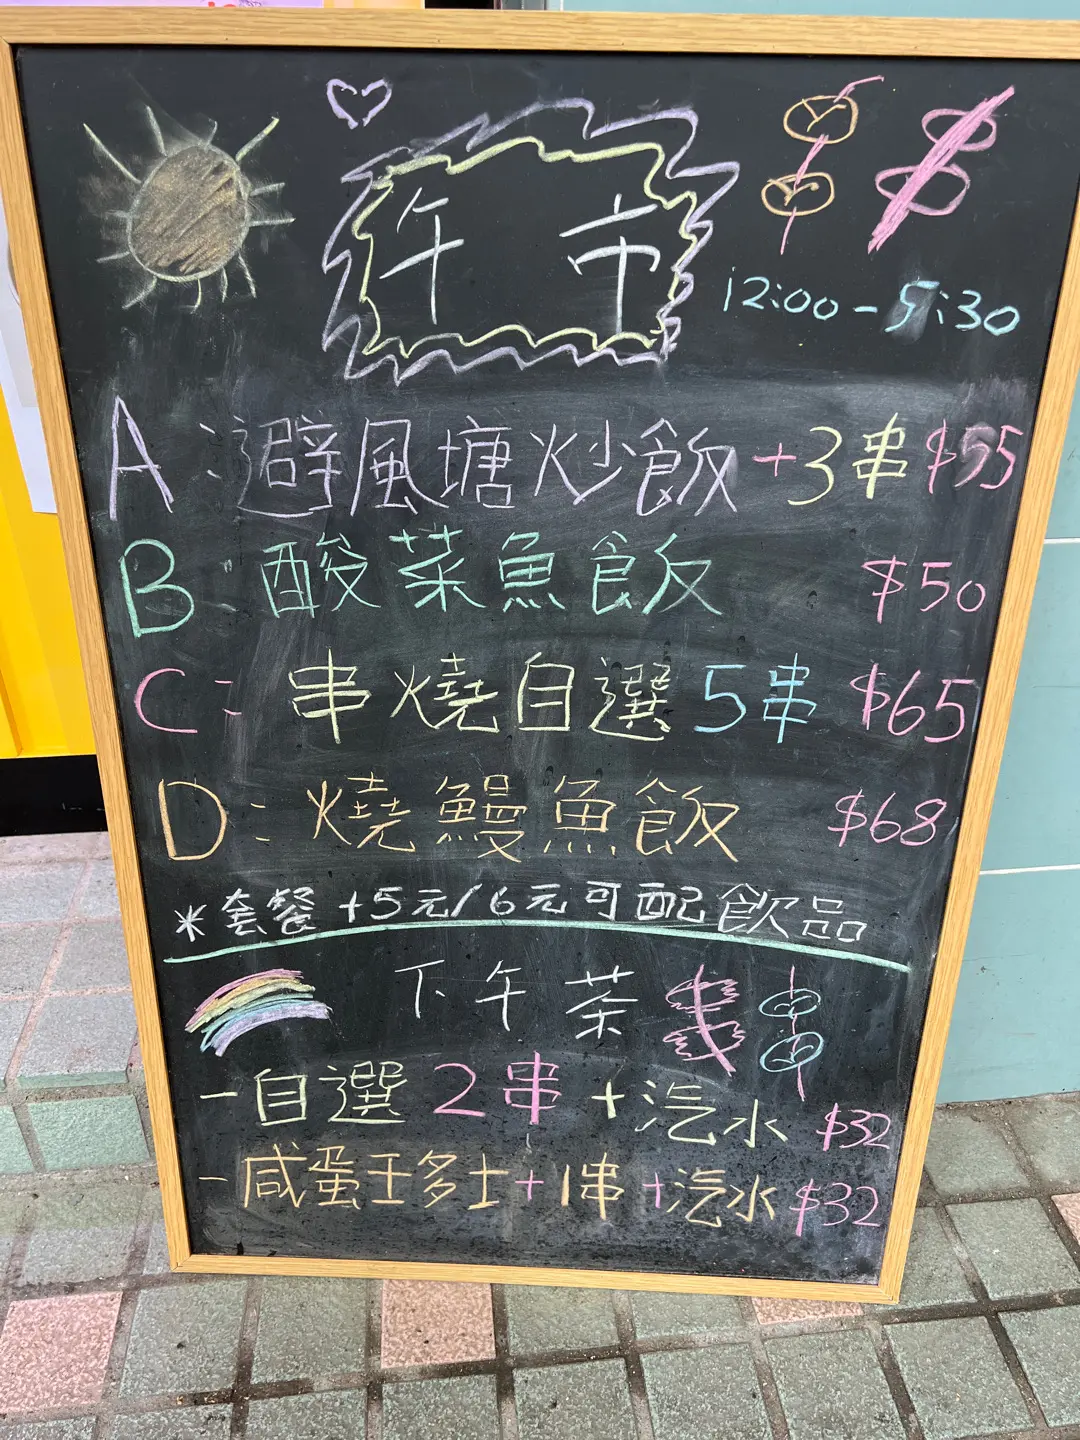 午市
12:00-5:30
A:避風塘炒飯+3串$55
B:酸菜魚飯 $50
C:串燒自選5串 $65
D:燒鰻魚飯 $68
*套餐+5元/6元可配飲品
下午茶
-自選2串+汽水 $32
-咸蛋王多士+1串+汽水 $32